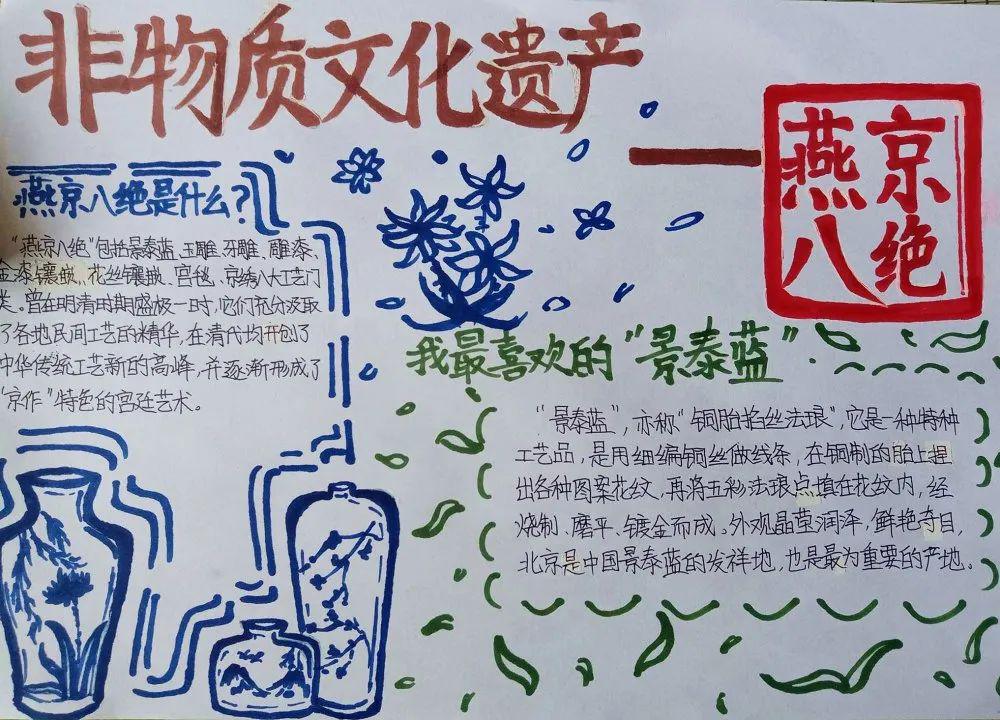 非物质文化遗产
燕京
八绝
燕京八绝是什么?
"燕京八绝"包括景泰蓝、玉雕、牙雕、雕漆、
金漆镶嵌、花丝镶嵌、宫毯、京绣八大工艺门
类。曾在明清时期盛极一时,它们充分汲取
了各地民间工艺的精华,在清代均开创了
中华传统工艺新的高峰,并逐渐形成了
"京作"特色的宫廷艺术。
我最喜欢的"景泰蓝"
"景泰蓝",亦称"铜胎掐丝法琅",它是一种特种
工艺品,是用细编铜丝做线条,在铜制的胎上捏
出各种图案花纹,再将五彩法琅点填在花纹内,经
烧制、磨平、镀金而成。外观晶莹润泽,鲜艳夺目,
北京是中国景泰蓝的发祥地,也是最为重要的产地。